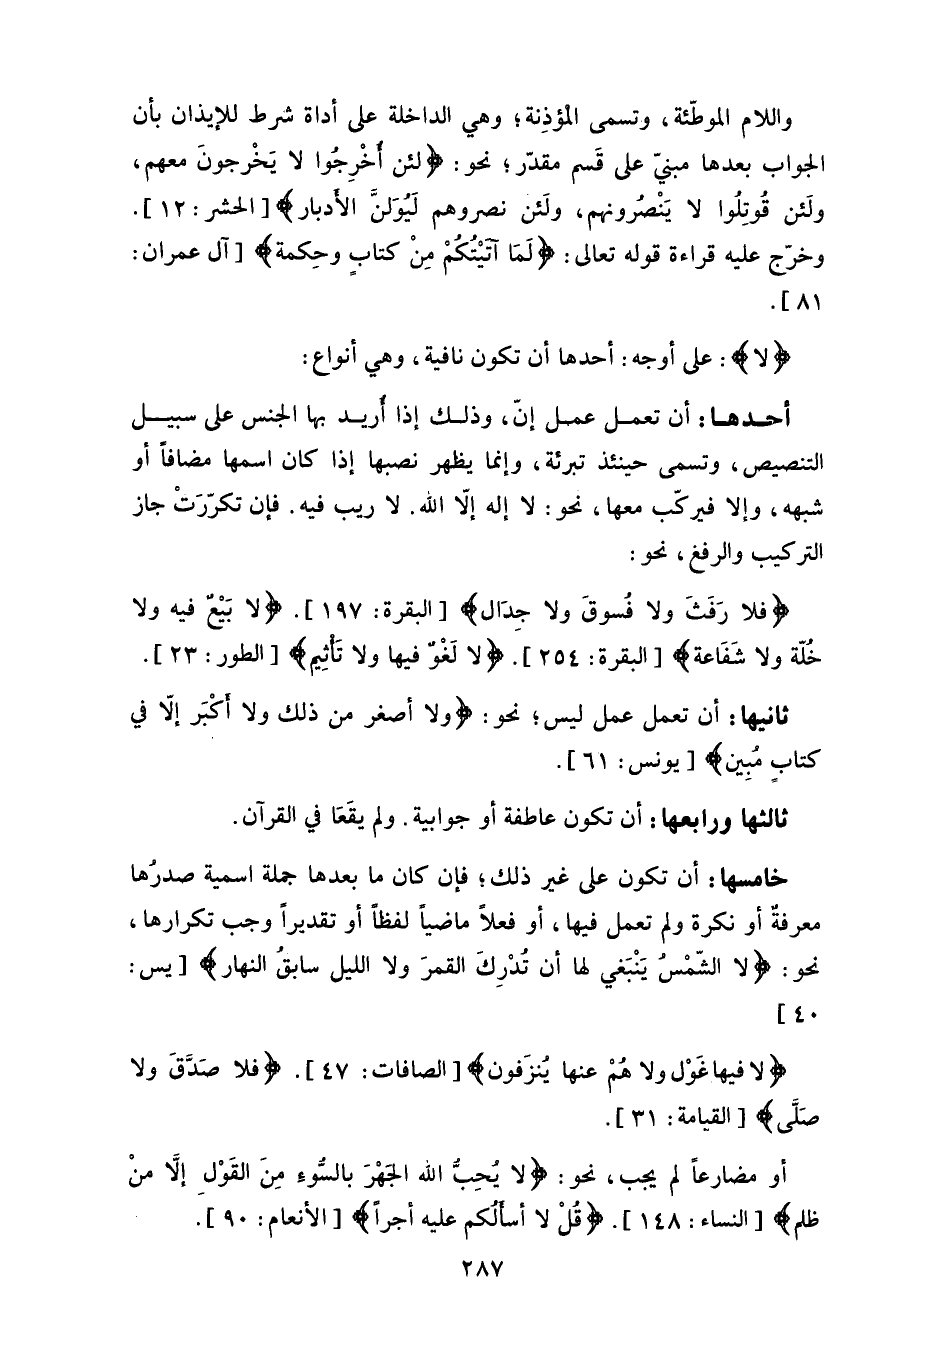 واللام الموطّئة، وتسمى المْؤذِنة؛ وهي الداخلة على أداة شرط للإيذان بأن
الجواب بعدها مبنيّ على قَسم مقدّر؛ نحو: ﴿لئن أُخْرِجُوا لا يَخْرجونَ معهم،
ولَئن قُوتِلُوا لا يَنْصُرونهم، ولَئن نصروهم لَيُوَلنَّ الأدبار﴾ [الحشر: ١٢].
وخرّج عليه قراءة قوله تعالى: ﴿لَمَا آتَيْتُكُمْ مِنْ كتابٍ وحِكمة﴾ [آل عمران:
٨١].
﴿لا﴾: على أوجه: أحدها أن تكون نافية، وهي أنواع:
أحدها: أن تعمل عمل إنّ، وذلك إذا أُريد بها الجنس على سبيل
التنصيص، وتسمى حينئذ تبرئة، وإنما يظهر نصبها إذا كان اسمها مضافاً أو
شبهه، وإلا فيركّب معها، نحو: لا إله إلّا الله. لا ريب فيه. فإن تكرّرَتْ جاز
التركيب والرفغ، نحو:
﴿فلا رَفَثَ ولا فُسوقَ ولا جِدَال﴾ [البقرة: ١٩٧]. ﴿لا بَيْعٌ فيه ولا
خُلّة ولا شَفَاعة﴾ [البقرة: ٢٥٤]. ﴿لا لَغْوٌ فيها ولا تَأْثِيم﴾ [الطور: ٢٣].
ثانيها: أن تعمل عمل ليس؛ نحو: ﴿ولا أصغر من ذلك ولا أَكْبَر إلّا في
كتابٍ مُبِين﴾ [يونس: ٦١].
ثالثها ورابعها: أن تكون عاطفة أو جوابية. ولم يقَعَا في القرآن.
خامسها: أن تكون على غير ذلك؛ فإن كان ما بعدها جملة اسمية صدرُها
معرفةٌ أو نكرة ولم تعمل فيها، أو فعلاً ماضياً لفظاً أو تقديراً وجب تكرارها،
نحو: ﴿لا الشّمْسُ يَنْبَغي لها أن تُدْرِكَ القمرَ ولا الليل سابقُ النهار﴾ [يس:
٤٠]
﴿لا فيها غَوْل ولا هُمْ عنها يُنزَفون﴾ [الصافات: ٤٧]. ﴿فلا صَدَّقَ ولا
صلَّى﴾ [القيامة: ٣١].
أو مضارعاً لم يجب، نحو: ﴿لا يُحِبُّ الله الجَهْرَ بالسُّوءِ مِنَ القَوْلِ إلَّا منْ
ظلم﴾ [النساء: ١٤٨]. ﴿قُلْ لا أسألُكم عليه أجراً﴾ [الأنعام: ٩٠].
٢٨٧